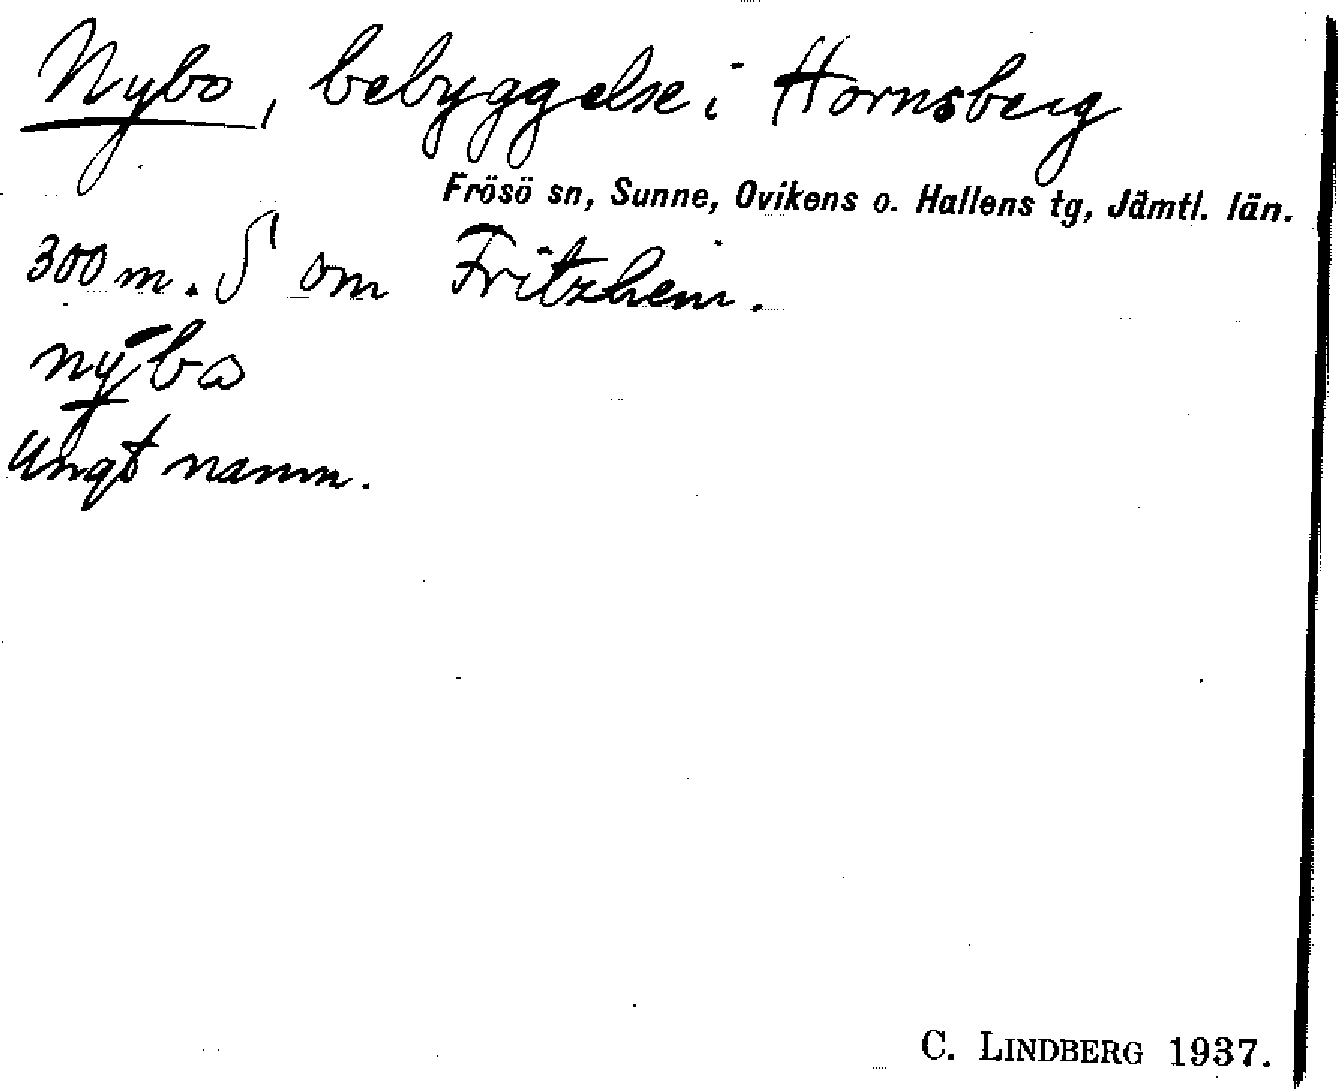 Nybo, bebyggelse i Hornsberg
Frösö sn, Sunne, Ovikens o. Hallens tg, Jämtl. län.
300 m. S om Fritzhem.
nýbo
Ungt namn.
C. LINDBERG 1937.